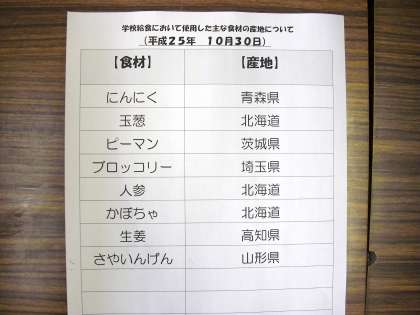 学校給食において使用した主な食材の産地について
（平成２５年　１０月３０日）
【食材】　【産地】
にんにく　青森県
玉葱　北海道
ピーマン　茨城県
ブロッコリー　埼玉県
人参　北海道
かぼちゃ　北海道
生姜　高知県
さやいんげん　山形県